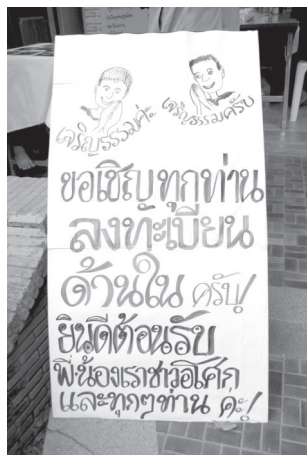 เจริญธรรมค่ะ เจริญธรรมครับ
ขอเชิญทุกท่าน
ลงทะเบียน
ด้านใน ครับ!
ยินดีต้อนรับ
พี่น้องเราชาวอโศก
และทุกๆท่าน ค่ะ!